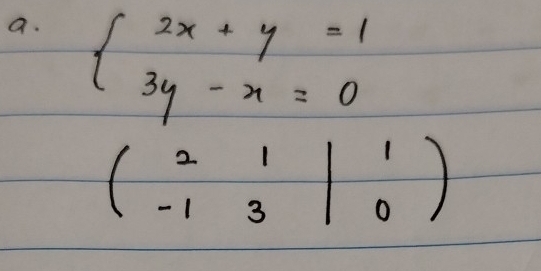 a. { 2x + y = 1
3y - x = 0
( 2 1 | 1
-1 3 | 0 )